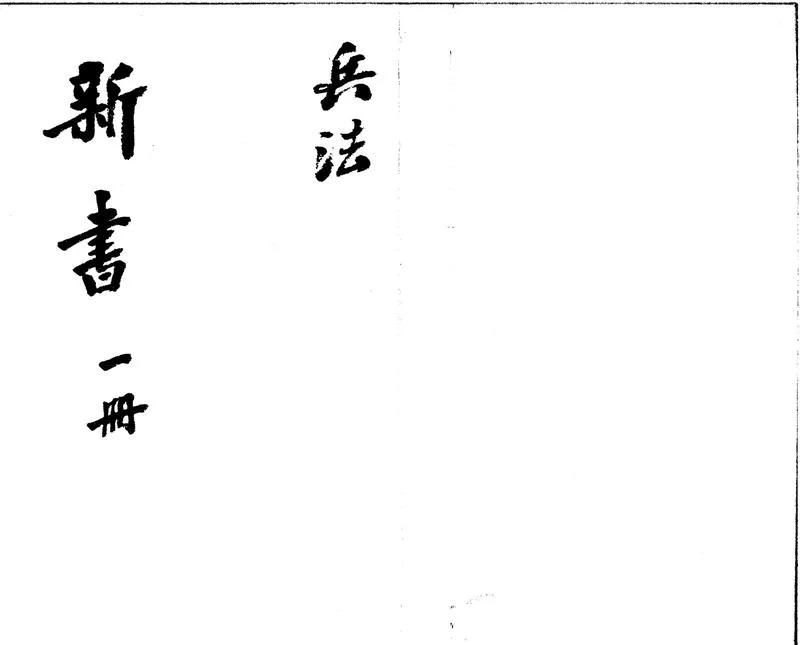 兵法
新書 一冊